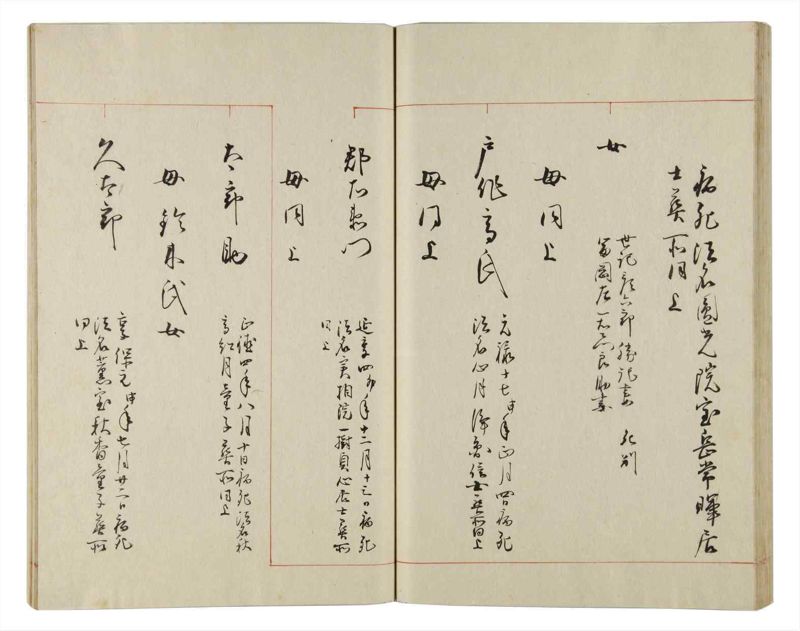 病死法名圓光院宝岳常暉居
士葬所同上
女
世記彦六郎勝記妻 死別
富岡庄一
助妻
母同上
戸作高氏
元禄十七申年正月四日病死
法名心月浄
信士葬所同上
母同上
郡右衛門
延享四卯年十二月十三日病死
法名実相院一樹貞心居士葬所
同上
母同上
太郎助
正徳四年八月十日病死法名秋
高紅月童子葬所同上
母鈴木氏女
久太郎
享保元申年七月廿二日病死
法名薫室秋香童子葬所
同上